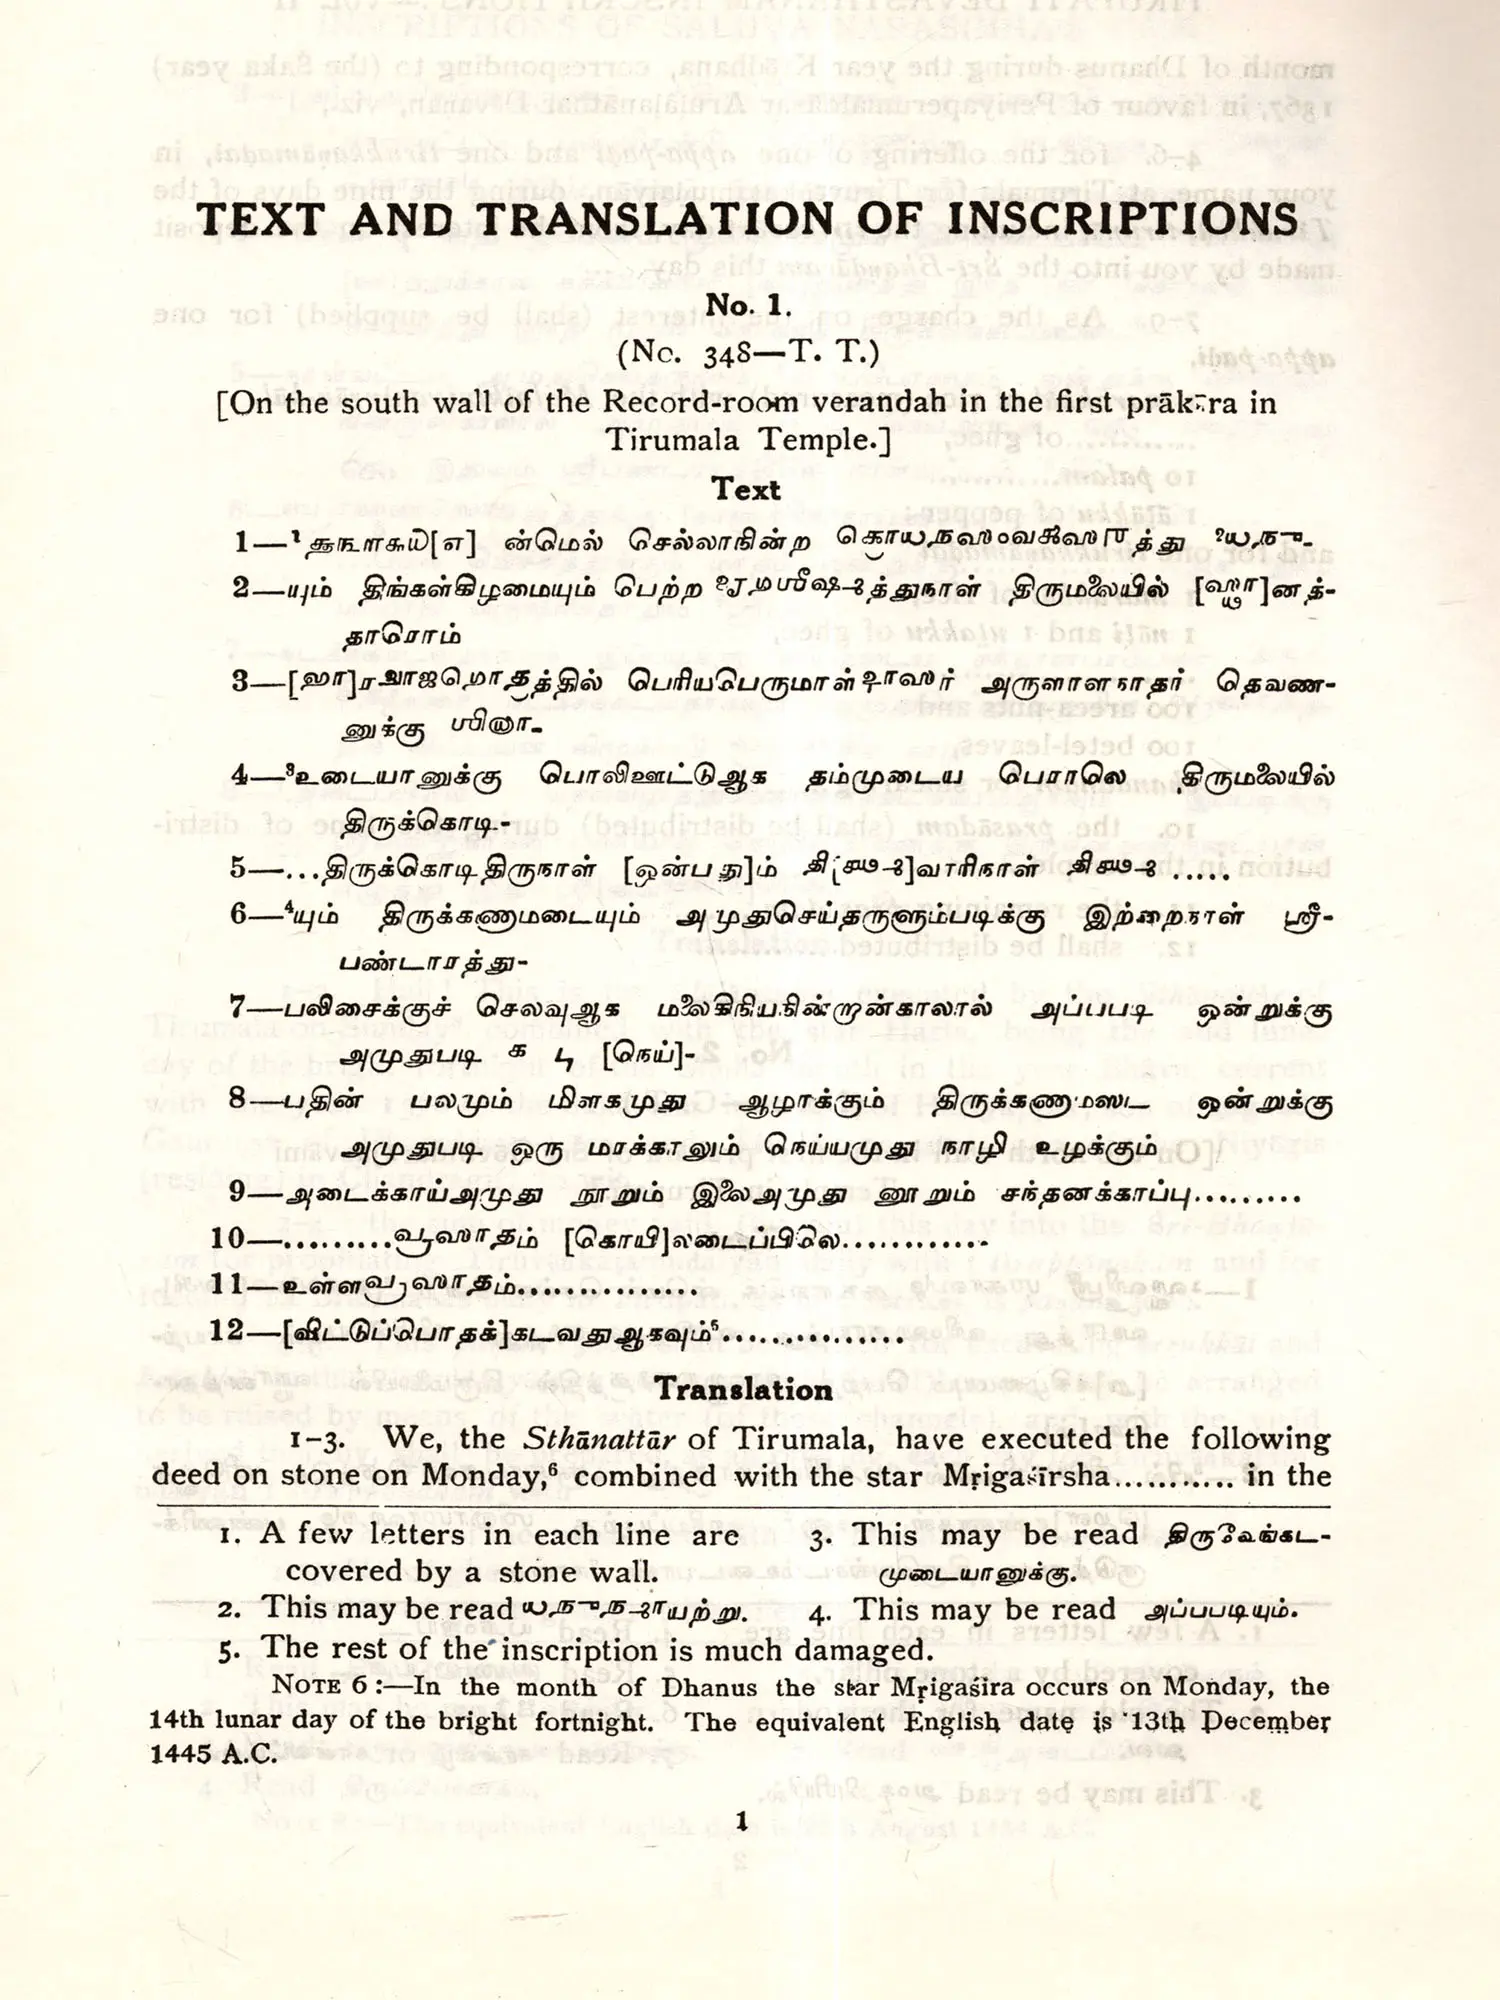 TEXT AND TRANSLATION OF INSCRIPTIONS
No. 1.
(No. 348—T. T.)
[On the south wall of the Record-room verandah in the first prākāra in
Tirumala Temple.]
Text
1—¹ ன்மெல் செல்லாநின்ற
2—யும் திங்கள்கிழமையும் பெற்ற திருமலையில்
தாரொம்
3— பெரியபெருமாள் அருளாளநாதர் தெவண-
னுக்கு
4—³உடையானுக்கு பொலிஊட்டுஆக தம்முடைய பெராலெ திருமலையில்
திருக்கொடி-
5—...திருக்கொடிதிருநாள் [ஒன்பது]ம் .....
6—⁴யும் திருக்கணுமடையும் அமுதுசெய்தருளும்படிக்கு இற்றைநாள் ஸ்ரீ-
பண்டாரத்து-
7—பலிசைக்குச் செலவுஆக மலைகிநியநின்றான்காலால் அப்பபடி ஒன்றுக்கு
அமுதுபடி க [நெய்]-
8—பதின் பலமும் மிளகமுது ஆழாக்கும் திருக்கணுமடை ஒன்றுக்கு
அமுதுபடி ஒரு மரக்காலும் நெய்யமுது நாழி உழக்கும்
9—அடைக்காய்அமுது நூறும் இலைஅமுது நூறும் சந்தனக்காப்பு.........
10—.........ப்ரஸாதம் [கொயி]லடைப்பிலெ.............
11—உள்ளப்ரஸாதம்...............
12—[விட்டுப்பொதக்]கடவதுஆகவும்⁵...............
Translation
1-3. We, the Sthānattār of Tirumala, have executed the following
deed on stone on Monday,⁶ combined with the star Mṛigaśīrsha........... in the
1. A few letters in each line are
covered by a stone wall.
2. This may be read
3. This may be read திருவேங்கட-
முடையானுக்கு.
4. This may be read அப்பபடியும்.
5. The rest of the inscription is much damaged.
NOTE 6 :—In the month of Dhanus the star Mṛigaśira occurs on Monday, the
14th lunar day of the bright fortnight. The equivalent English date is 13th December
1445 A.C.
1